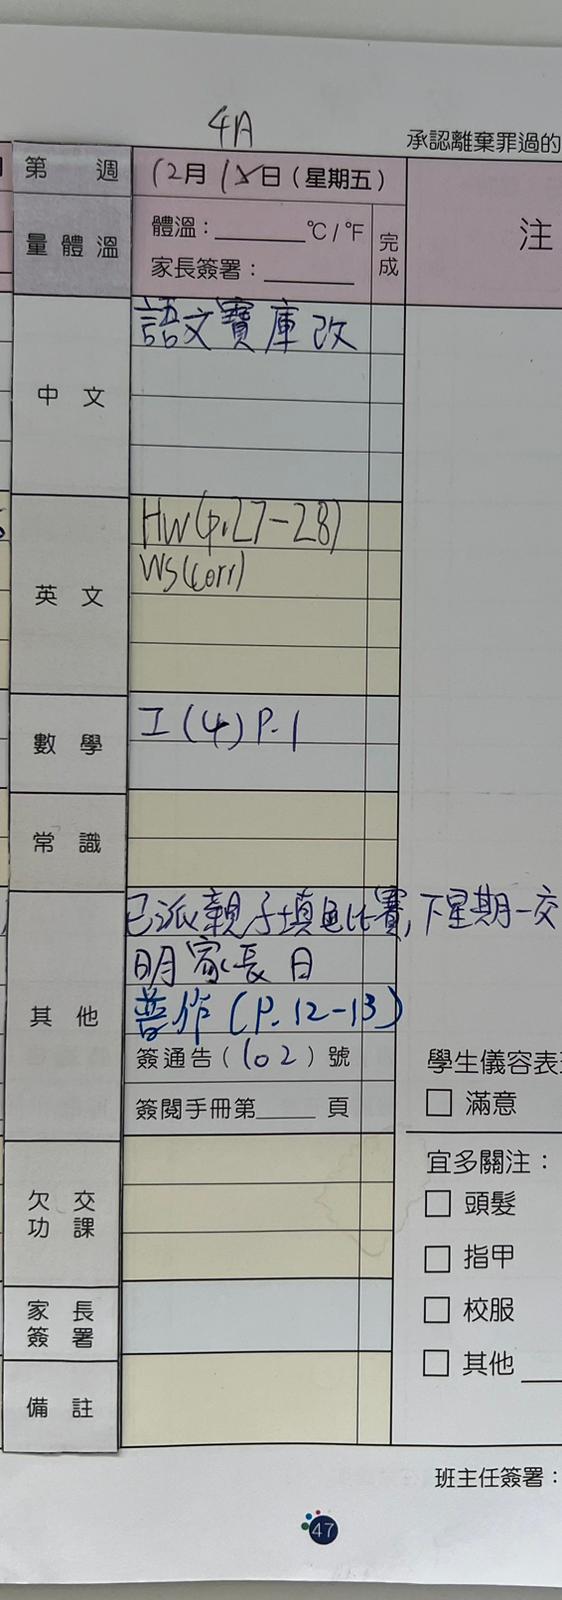 4A
承認離棄罪過的
第 週
12月 日（星期五）
注
量體溫
體溫：______℃/℉
家長簽署：______
完成
中文
語文寶庫改
英文
HW(p.27-28)
WS(corr)
數學
工(4)P.1
常識
其他
已派親子填色比賽,下星期一交
明家長日
普作(P.12-13)
簽通告（102）號
簽閱手冊第____頁
學生儀容表
滿意
宜多關注：
頭髮
指甲
校服
其他
欠交功課
家長簽署
備註
班主任簽署：
47